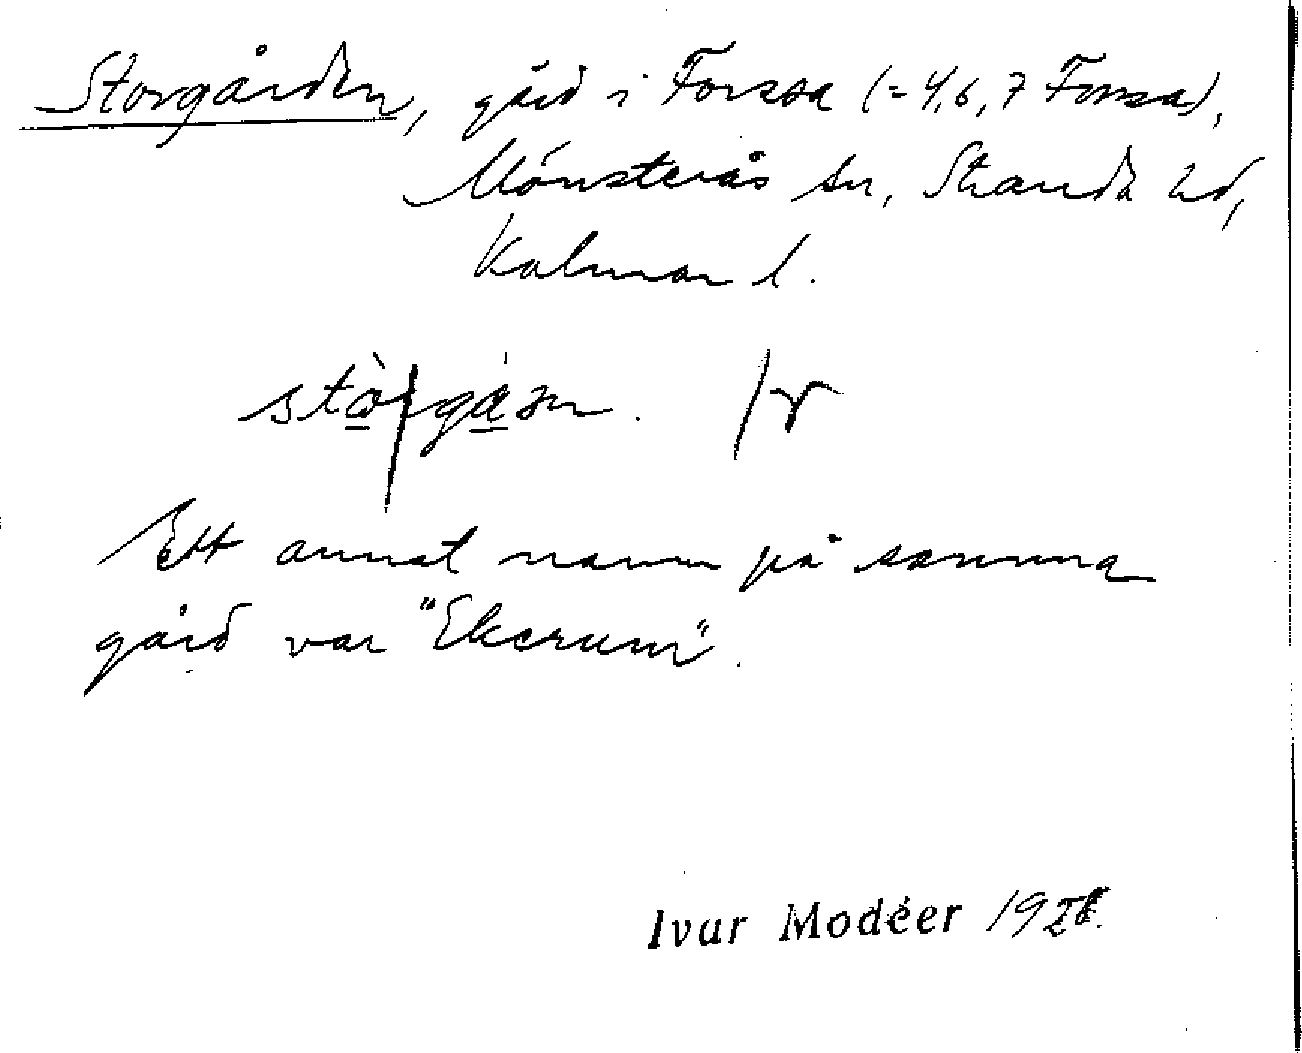 Storgården, gård i Forssa (= 4, 6, 7 Forssa),
Mönsterås sn, Stranda hd,
Kalmar l.
Ett annat namn på samma
gård var "Ekerum".
Ivar Modéer